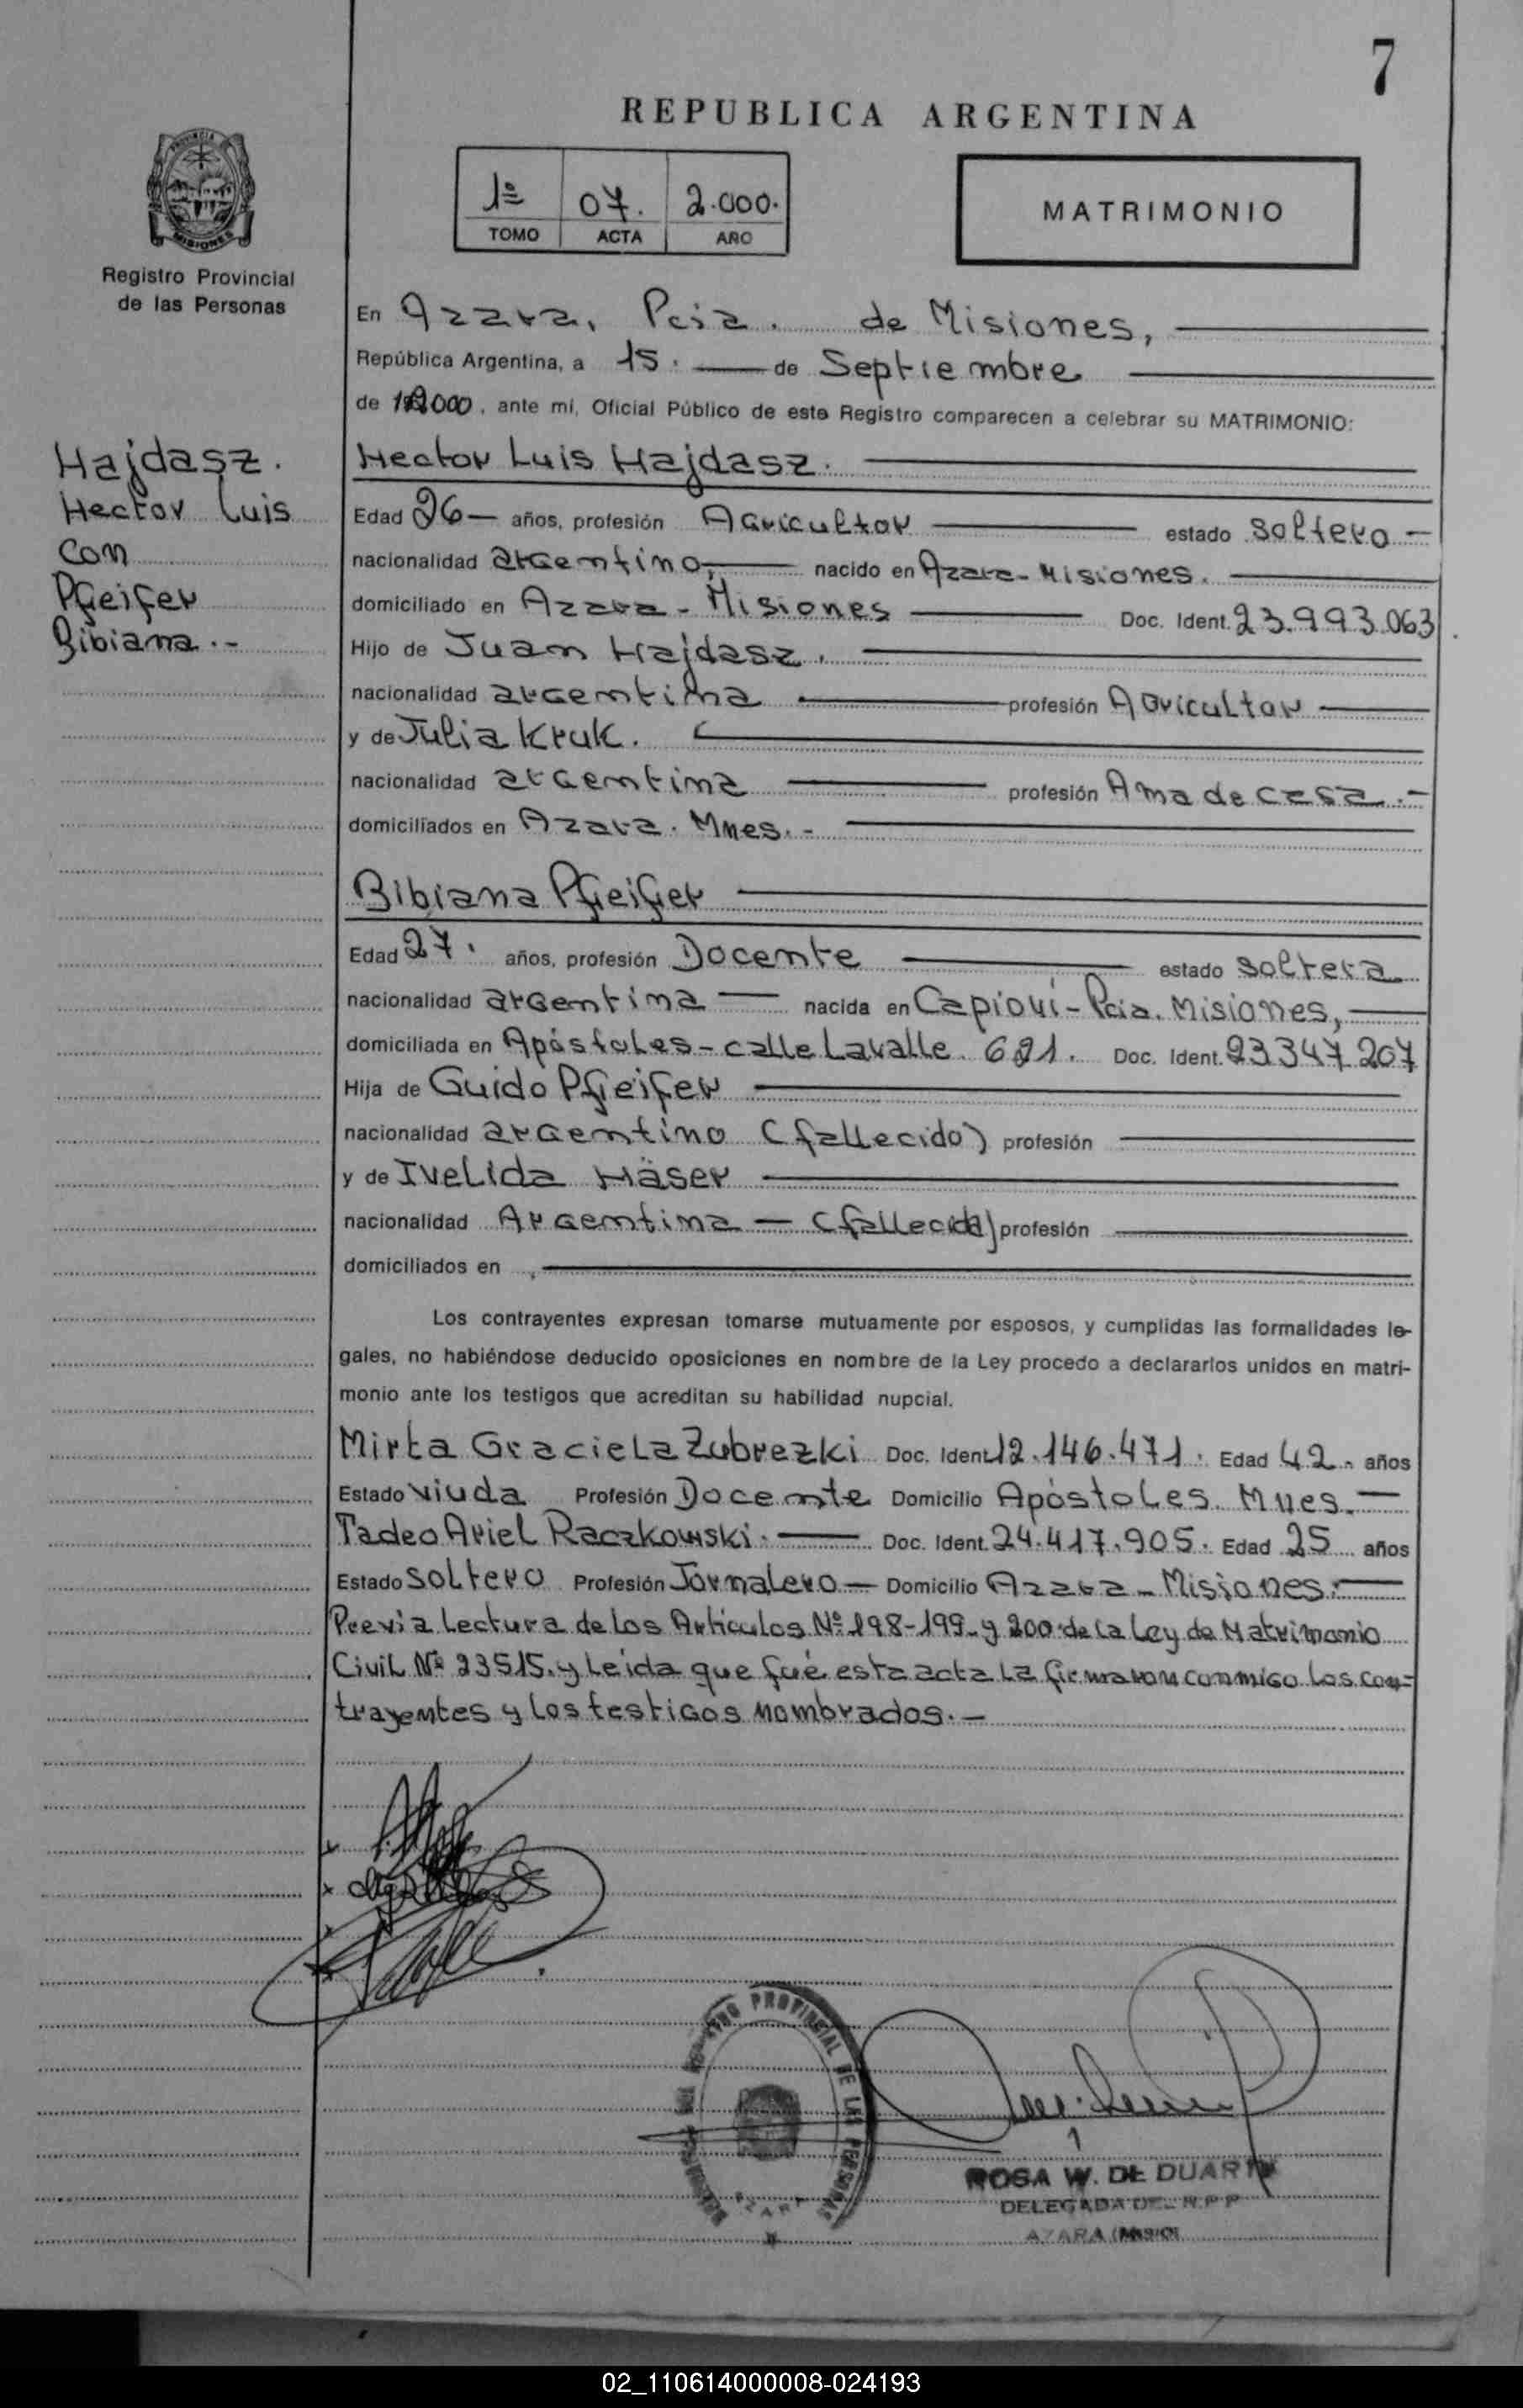 7
REPUBLICA ARGENTINA
1º 07. 2.000.
TOMO ACTA AÑO
MATRIMONIO
PROVINCIA DE
MISIONES
Registro Provincial
de las Personas
En Azara, Pcia. de Misiones,
República Argentina, a 15. de Septiembre
de 2000, ante mí, Oficial Público de este Registro comparecen a celebrar su MATRIMONIO:
Hajdasz.
Hector Luis
con
Pfeifer
Bibiana.-
Hector Luis Hajdasz.
Edad 26— años, profesión Agricultor estado soltero —
nacionalidad argentino, nacido en Azara-Misiones.
domiciliado en Azara - Misiones Doc. Ident. 23.993.063
Hijo de Juan Hajdasz.
nacionalidad argentina profesión Agricultor
y de Julia Kruk.
nacionalidad argentina profesión Ama de casa.-
domiciliados en Azara. Mnes.-
Bibiana Pfeifer
Edad 27. años, profesión Docente estado soltera
nacionalidad argentina — nacida en Capioví-Pcia. Misiones,
domiciliada en Apóstoles-calle Lavalle. 621. Doc. Ident. 23.347.207
Hija de Guido Pfeifer
nacionalidad argentino (fallecido) profesión
y de Ivelida Häser
nacionalidad Argentina — (fallecida) profesión
domiciliados en
Los contrayentes expresan tomarse mutuamente por esposos, y cumplidas las formalidades le-
gales, no habiéndose deducido oposiciones en nombre de la Ley procedo a declararlos unidos en matri-
monio ante los testigos que acreditan su habilidad nupcial.
Mirta Graciela Zubrezki Doc. Ident. 12.146.471. Edad 42. años
Estado viuda Profesión Docente Domicilio Apóstoles. Mnes.—
Tadeo Ariel Raczkowski. Doc. Ident. 24.417.905. Edad 25 años
Estado soltero Profesión Jornalero — Domicilio Azara - Misiones.
Previa lectura de los Artículos Nº 198-199- y 200 de la Ley de Matrimonio
Civil Nº 23515. y leída que fué esta acta la firmaron conmigo los con-
trayentes y los testigos nombrados.—
REGISTRO PROVINCIAL DE LAS PERSONAS
AZARA
ROSA W. DE DUARTE
DELEGADA DEL R.P.P
AZARA (MISIO
02_110614000008-024193